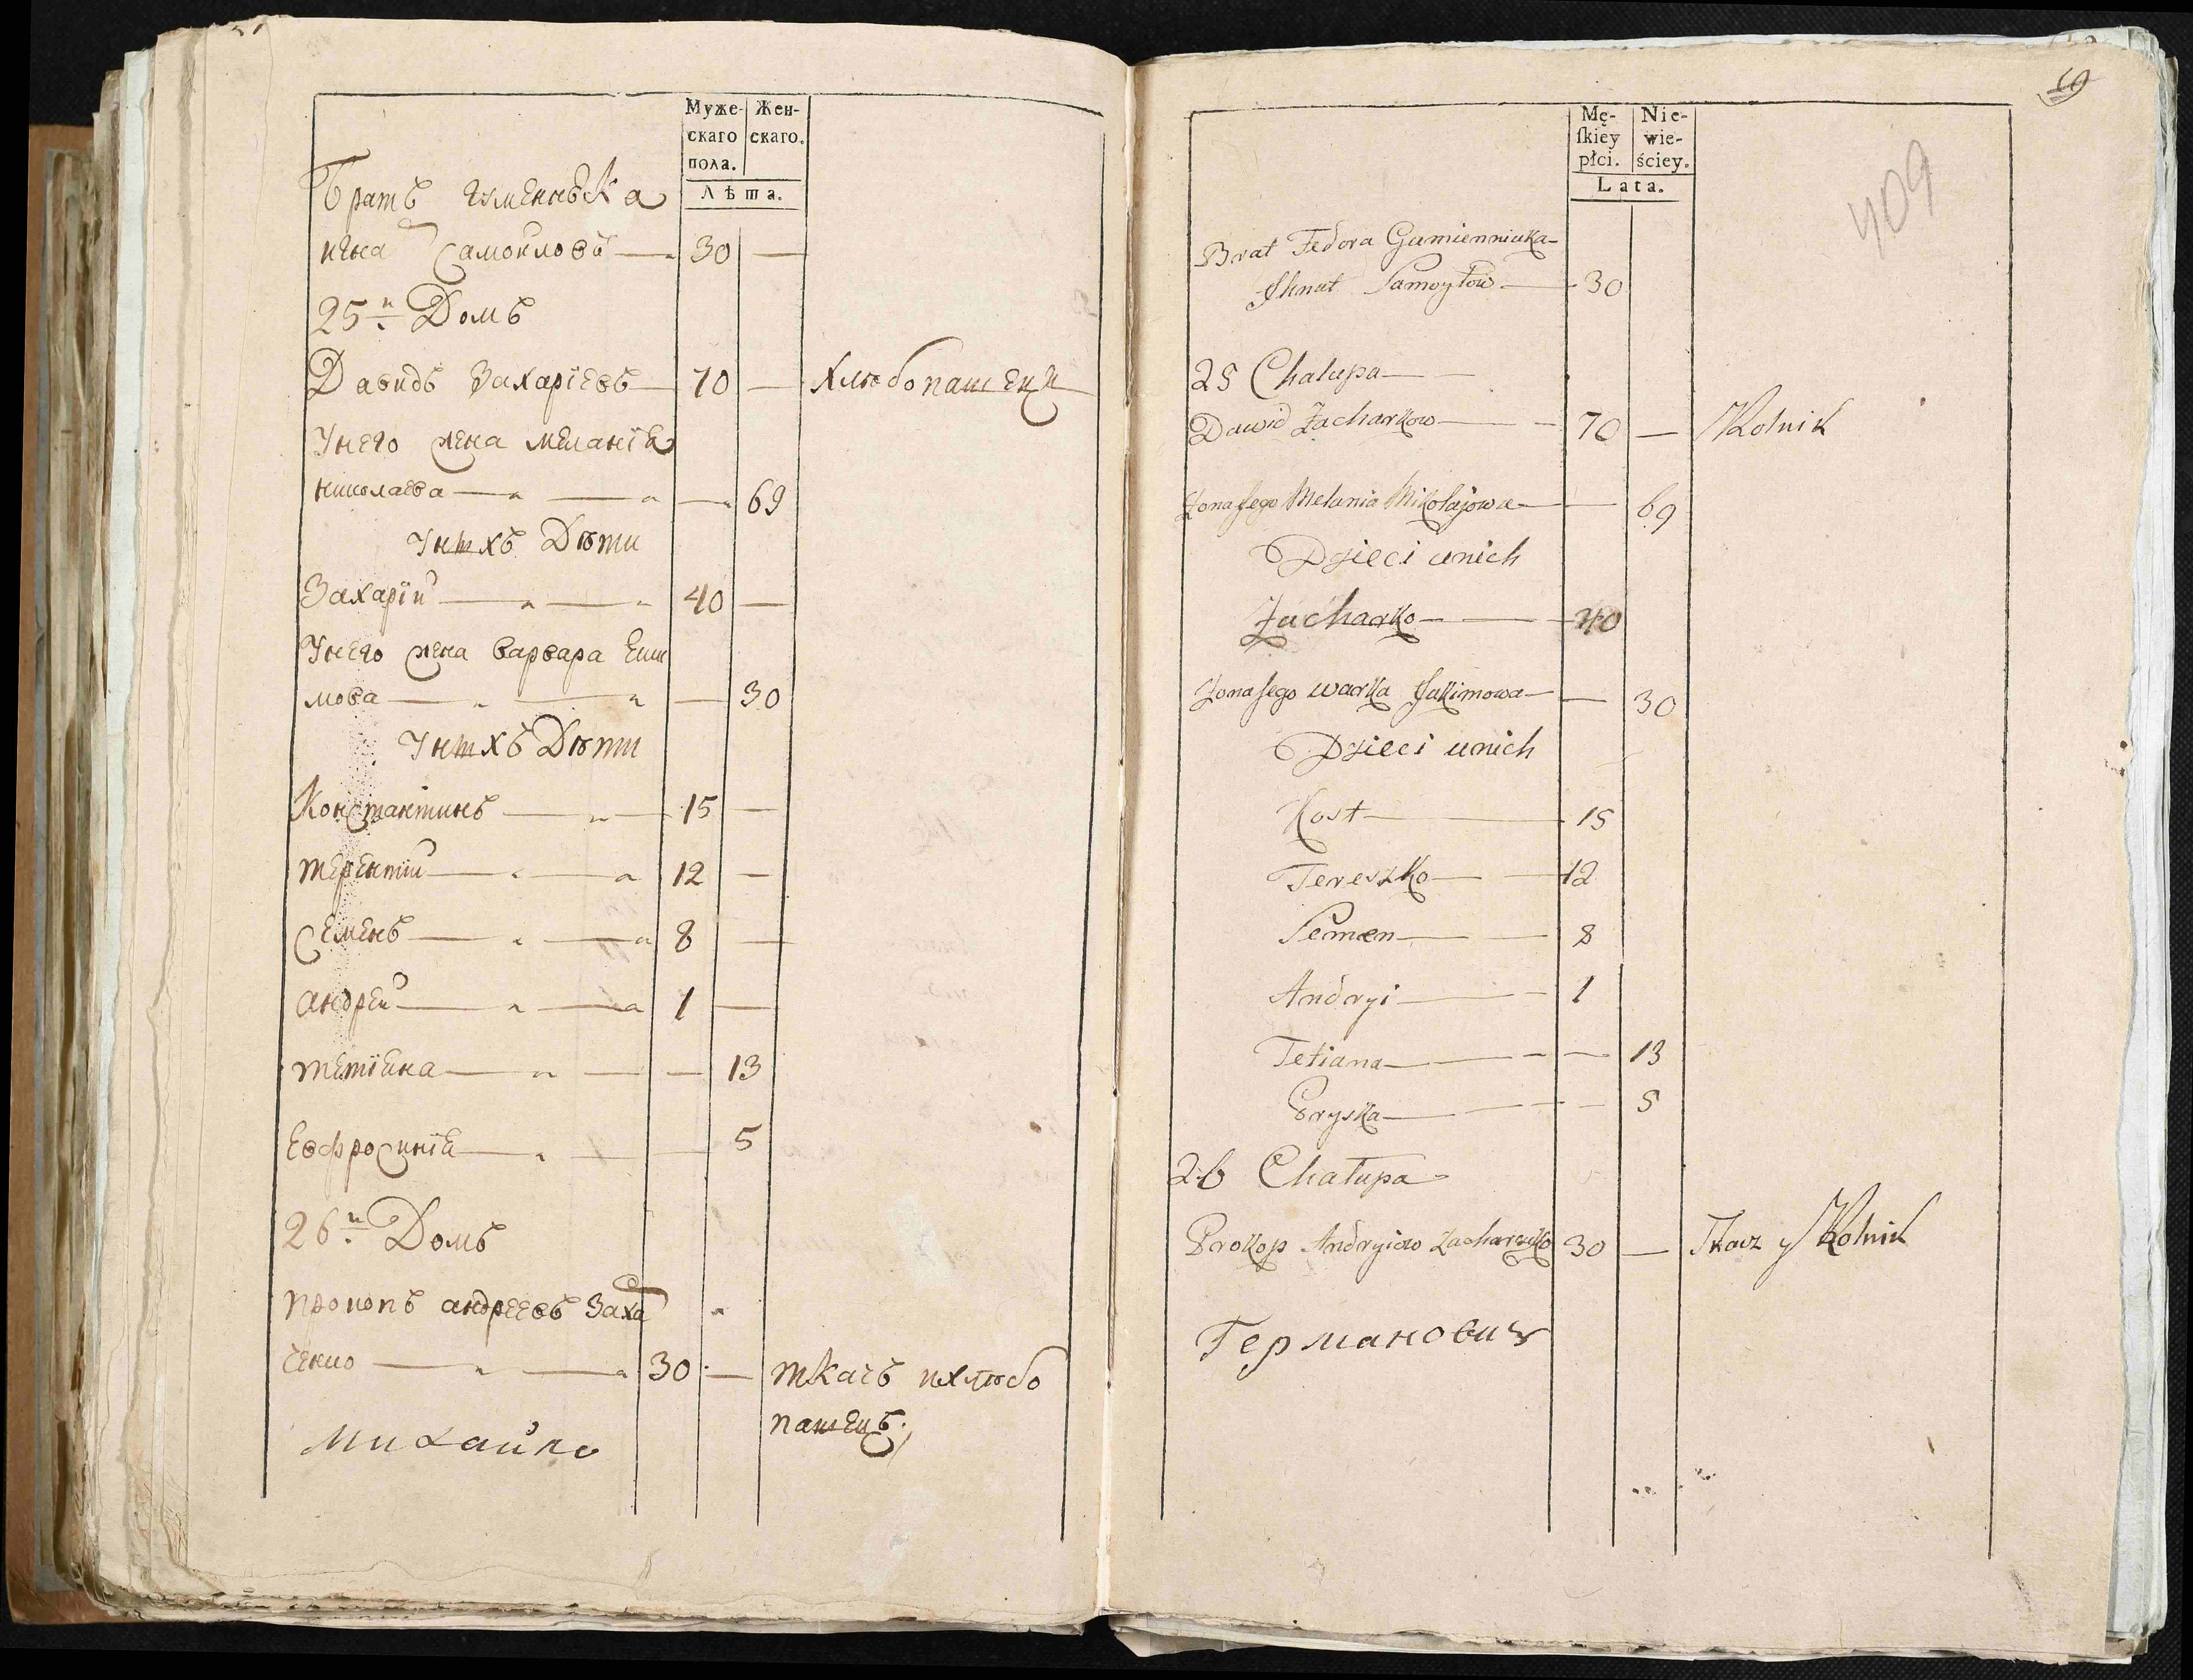 Муже-
скаго
пола.
Жен-
скаго.
Лѣта.
Братъ гуменнѣка
Самойловъ 30 —
25й Домъ
Давидъ Захарїевъ 70 — хлѣбопашецъ
Унего жена меланїя
николаева — 69
Унихъ Дѣти
Захарїй 40 —
Унего жена варвара еки
мова — 30
Унихъ Дѣти
Константинъ 15 —
терентїй 12 —
Семенъ 8 —
андрей 1 —
тетїяна — 13
Евфросинїя — 5
26й Домъ
прокопъ андреевъ Заха
ченко 30 — ткачъ ихлѣбо
пашецъ.
Михайло
69
409
Mę-
ſkiey
płci.
Nie-
wie-
ściey.
Lata.
Brat Fedora Gumienniuka
Ihnat Samoyłow 30
25 Chałupa
Dawid Zacharkow 70 — Rolnik
Żona Jego Melania Mikołajowa — 69
Dzieci unich
Zacharko 40
Żona Jego warka Jakimowa — 30
Dzieci unich
Kost 15
Tereszko 12
Semen 8
Andryi 1
Tetiana — 13
Pryska — 5
26 Chałupa
Prokop Andryiow Zacharczko 30 — Tkacz y Rolnik
Германович